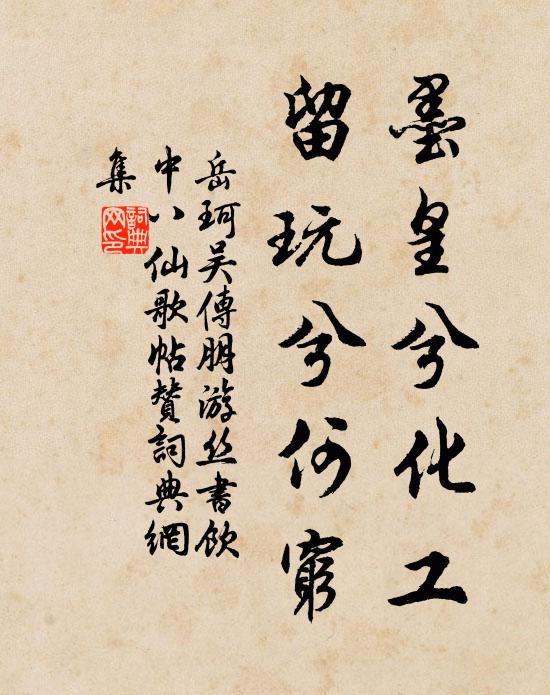 墨皇兮化工
留玩兮何窮
岳珂吴傅朋游丝書飲
中八仙歌帖贊詞典網
集
詞典网印